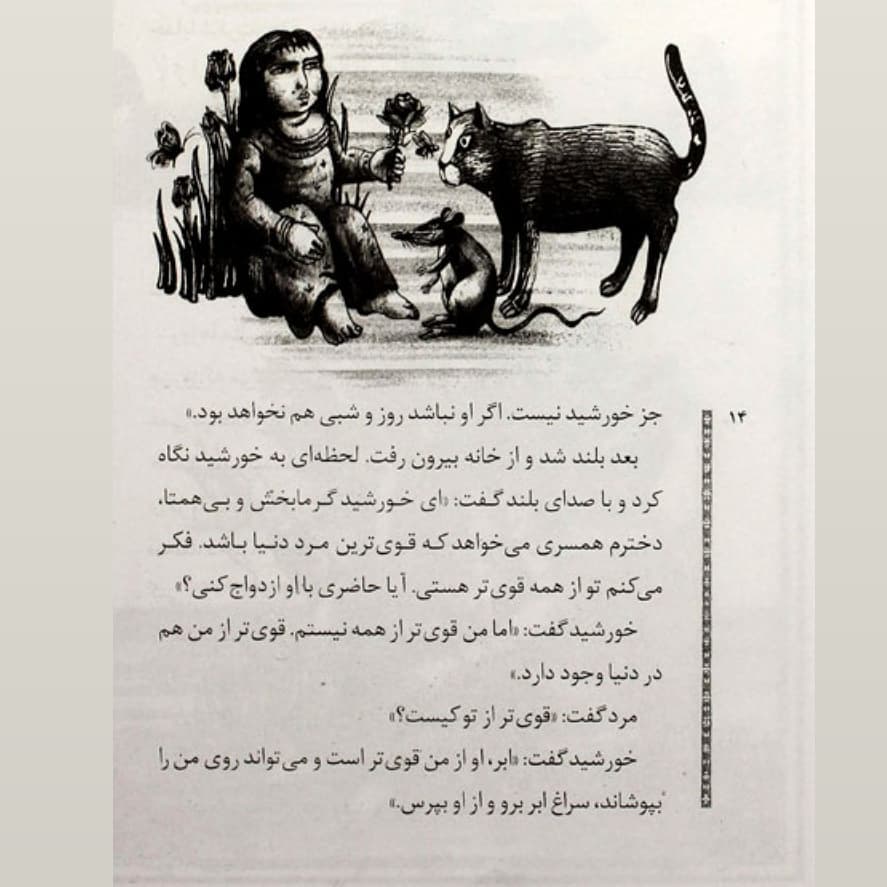 ۱۴
جز خورشید نیست. اگر او نباشد روز و شبی هم نخواهد بود.»
بعد بلند شد و از خانه بیرون رفت. لحظه‌ای به خورشید نگاه
کرد و با صدای بلند گفت: «ای خورشید گرمابخش و بی‌همتا،
دخترم همسری می‌خواهد که قوی‌ترین مرد دنیا باشد. فکر
می‌کنم تو از همه قوی‌تر هستی. آیا حاضری با او ازدواج کنی؟»
خورشید گفت: «اما من قوی‌تر از همه نیستم. قوی‌تر از من هم
در دنیا وجود دارد.»
مرد گفت: «قوی‌تر از تو کیست؟»
خورشید گفت: «ابر، او از من قوی‌تر است و می‌تواند روی من را
بپوشاند، سراغ ابر برو و از او بپرس.»